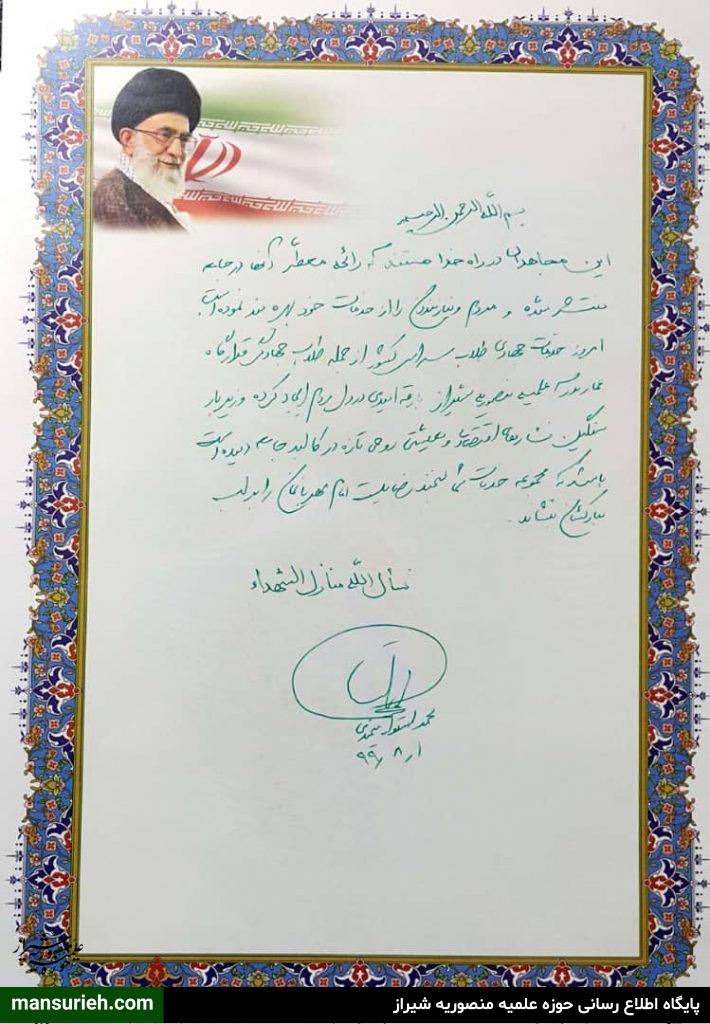 بسم الله الرحمن الرحیم
این مجاهدان در راه خدا هستند که رائحه معطر آنها در جامعه
منتشر شده و مردم و نیازمندان را از خدمات خود بهره مند نموده است
امروز خدمات جهادی طلاب سراسر کشور از جمله طلاب جهادی قرارگاه
عمار مدرسه علمیه منصوریه شیراز بارقه امیدی در دل مردم ایجاد کرده و زیر بار
سنگین فشارهای اقتصادی و معیشتی روحی تازه در کالبد جامعه دمیده است
باشد که مجموعه خدمات شما لبخند رضایت امام عهد یابمان را بر لب
مبارکشان بنشاند.
نسأل الله منازل الشهداء
محمد استوار میمندی
۹۹/۸/۱
mansurieh.com
پایگاه اطلاع رسانی حوزه علمیه منصوریه شیراز